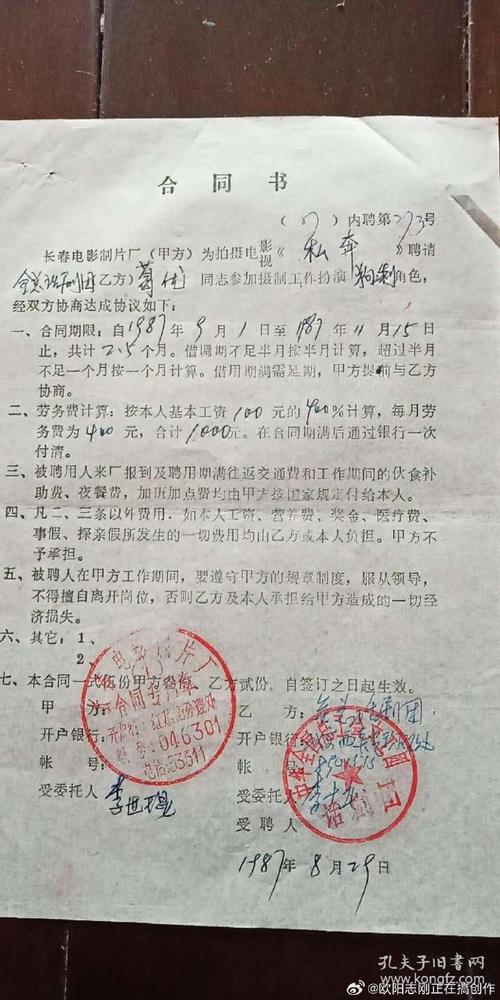 合同书
(87)内聘第273号
长春电影制片厂(甲方)为拍摄电影视《私奔》聘请
全总话剧团(乙方)葛优同志参加摄制工作扮演 角色,
经双方协商达成协议如下:
一、合同期限:自1987年9月1日至1987年11月15日
止,共计2.5个月。借调期不足半月按半月计算,超过半月
不足一个月按一个月计算。借用期满需延期,甲方提前与乙方
协商。
二、劳务费计算:按本人基本工资100元的400%计算,每月劳
务费为400元,合计1000元。在合同期满后通过银行一次
付清。
三、被聘用人来厂报到及聘用期满往返交通费和工作期间的伙食补
助费、夜餐费,加班加点费均由甲方按国家规定付给本人。
四、凡二、三条以外费用,如本人工资、营养费、奖金、医疗费、
事假、探亲假所发生的一切费用均由乙方或本人负担。甲方不
予承担。
五、被聘人在甲方工作期间,要遵守甲方的规章制度,服从领导,
不得擅自离开岗位,否则乙方及本人承担给甲方造成的一切经
济损失。
六、其它:1、
2、
七、本合同一式伍份甲方叁份,乙方贰份。自签订之日起生效。
甲方:
开户银行:
帐号:
受委托人
长春电影制片厂
合同专用章
046301
电话:53511
乙方:全总话剧团
开户银行:
帐号:
受委托人
受聘人
中华全国总工会
话剧团
1987年8月29日
孔夫子旧书网
@欧阳志刚正在搞创作